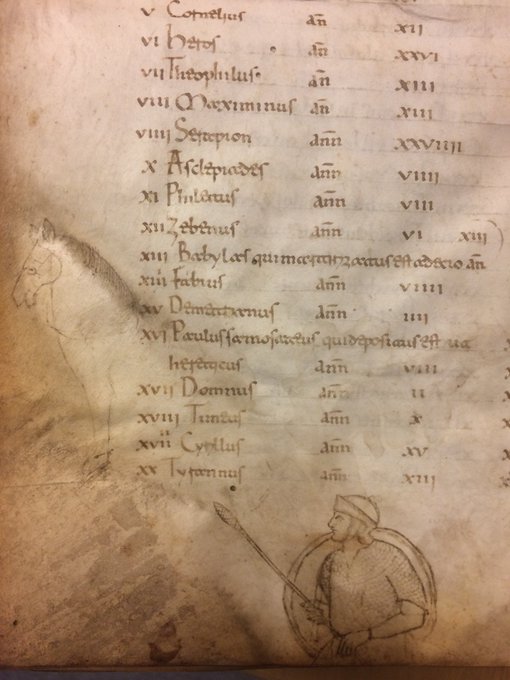 v Cornelius an̄ xii
vi Heros an̄ xxvi
vii Theophilus an̄ xiii
viii Maximinus an̄ xiii
viiii Serapion ann̄ xxviiii
x Asclepiades ann̄ viiii
xi Philetus ann̄ viii
xii Zebenus ann̄ vi xiii
xiii Babylas qui martyrizatus est a decio an̄
xiiii Fabius ann̄ viiii
xv Demetrianus ann̄ iiii
xvi Paulus samosateus qui depositus est
hereticus ann̄ viii
xvii Domnus ann̄ ii
xviii Timeus ann̄ x
xviiii Cyrillus ann̄ xv
xx Tyrannus ann̄ xiii